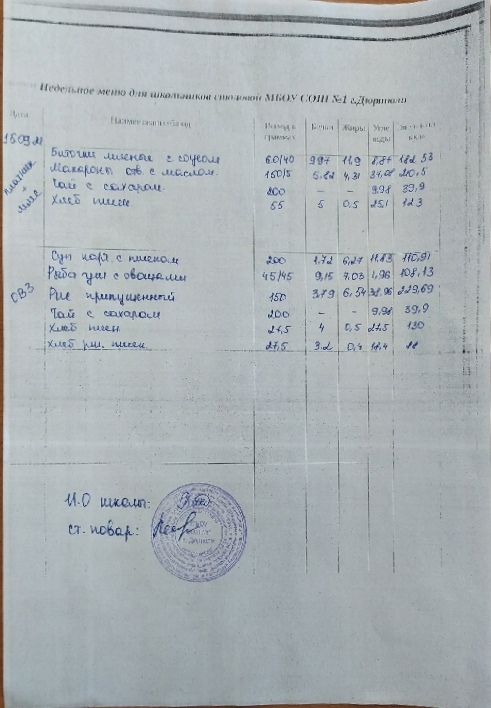 Недельное меню для школьников столовой МБОУ СОШ №1 г.Дюртюли
Дата Наименование блюд Выход в граммах Белки Жиры Угле воды
Биточки мясные с соусом 60/40 9,97 11,9 182,53
Макароны отв с маслом 150/5 5,82 4,31 210,5
Чай с сахаром 200 – – 9,98 39,9
Хлеб пшен. 55 5 0,5 25,1 123
Суп карт. с пшеном 200 1,72 6,27 11,83 110,91
Рыба туш с овощами 45/45 9,15 7,03 1,96 108,13
ОВЗ
Рис припущенный 150 3,79 6,54 38,96 229,69
Чай с сахаром 200 – – 9,98 39,9
Хлеб пшен. 27,5 4 0,5 27,5 130
Хлеб рж. пшен. 27,5 3.2 0,4 18,4 88
И.О школы:
ст. повар: